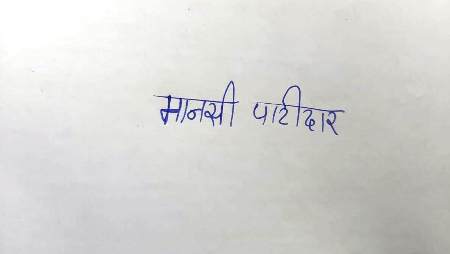 मानसी पाटीदार